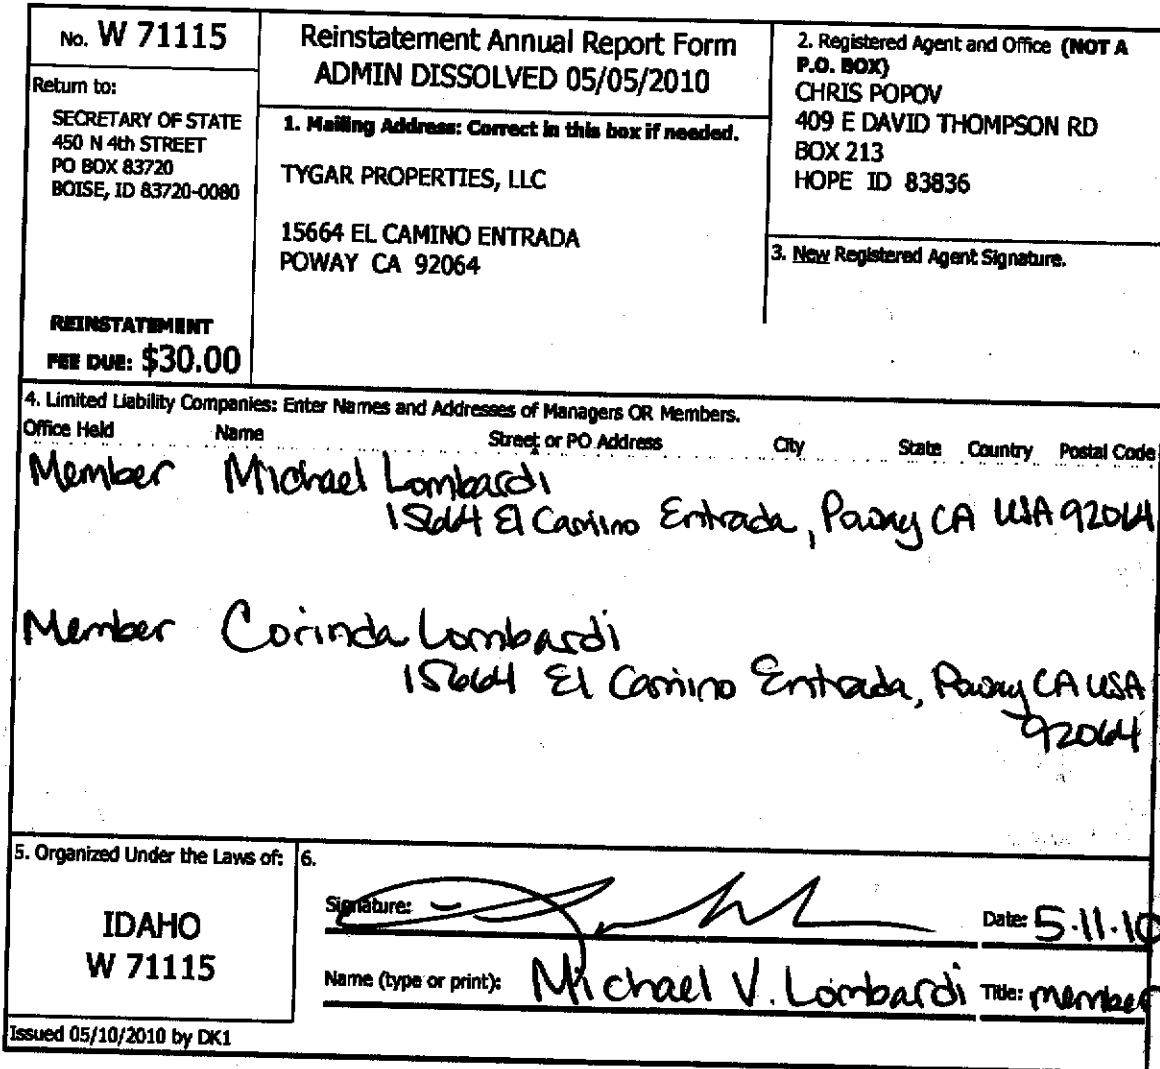 No. W 71115
Return to:
SECRETARY OF STATE
450 N 4th STREET
PO BOX 83720
BOISE, ID 83720-0080
REINSTATEMENT
FEE DUE: $30.00
Reinstatement Annual Report Form
ADMIN DISSOLVED 05/05/2010
1. Mailing Address: Correct in this box if needed.
TYGAR PROPERTIES, LLC
15664 EL CAMINO ENTRADA
POWAY CA 92064
2. Registered Agent and Office (NOT A
P.O. BOX)
CHRIS POPOV
409 E DAVID THOMPSON RD
BOX 213
HOPE ID 83836
3. New Registered Agent Signature.
4. Limited Liability Companies: Enter Names and Addresses of Managers OR Members.
Office Held Name Street or PO Address City State Country Postal Code
Member Michael Lombardi
15664 El Camino Entrada, Poway CA USA 92064
Member Corinda Lombardi
15664 El Camino Entrada, Poway CA USA
92064
5. Organized Under the Laws of:
IDAHO
W 71115
6.
Signature: Date: 5.11.10
Name (type or print): Michael V. Lombardi Title: member
Issued 05/10/2010 by DK1